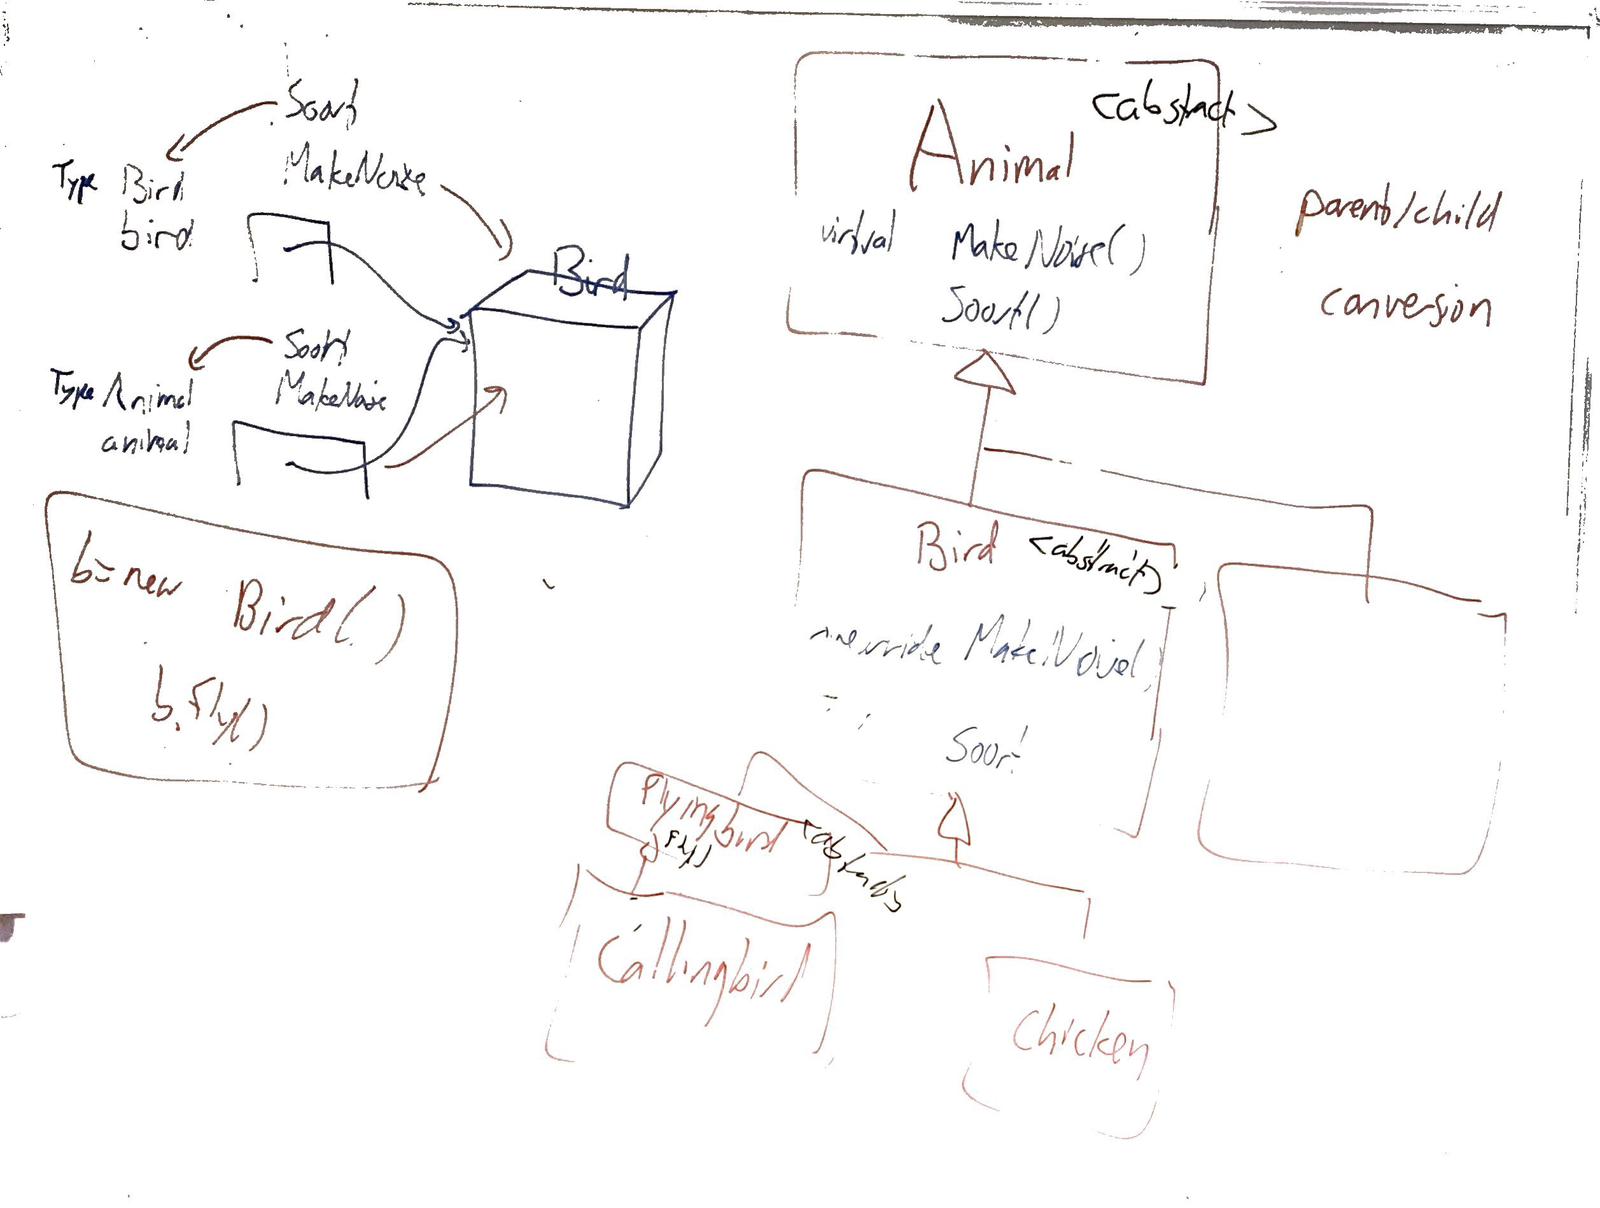 Soort
MakeNoise
Type Bird
bird
Bird
Soort
MakeNoise
Type Animal
animal
b=new Bird()
b.Fly()
<abstract>
Animal
virtual MakeNoise()
Soort()
parent/child
conversion
Bird <abstract>
override MakeNoise(
Soort
Flyingbird <abstract>
Fly()
Callingbird
Chicken